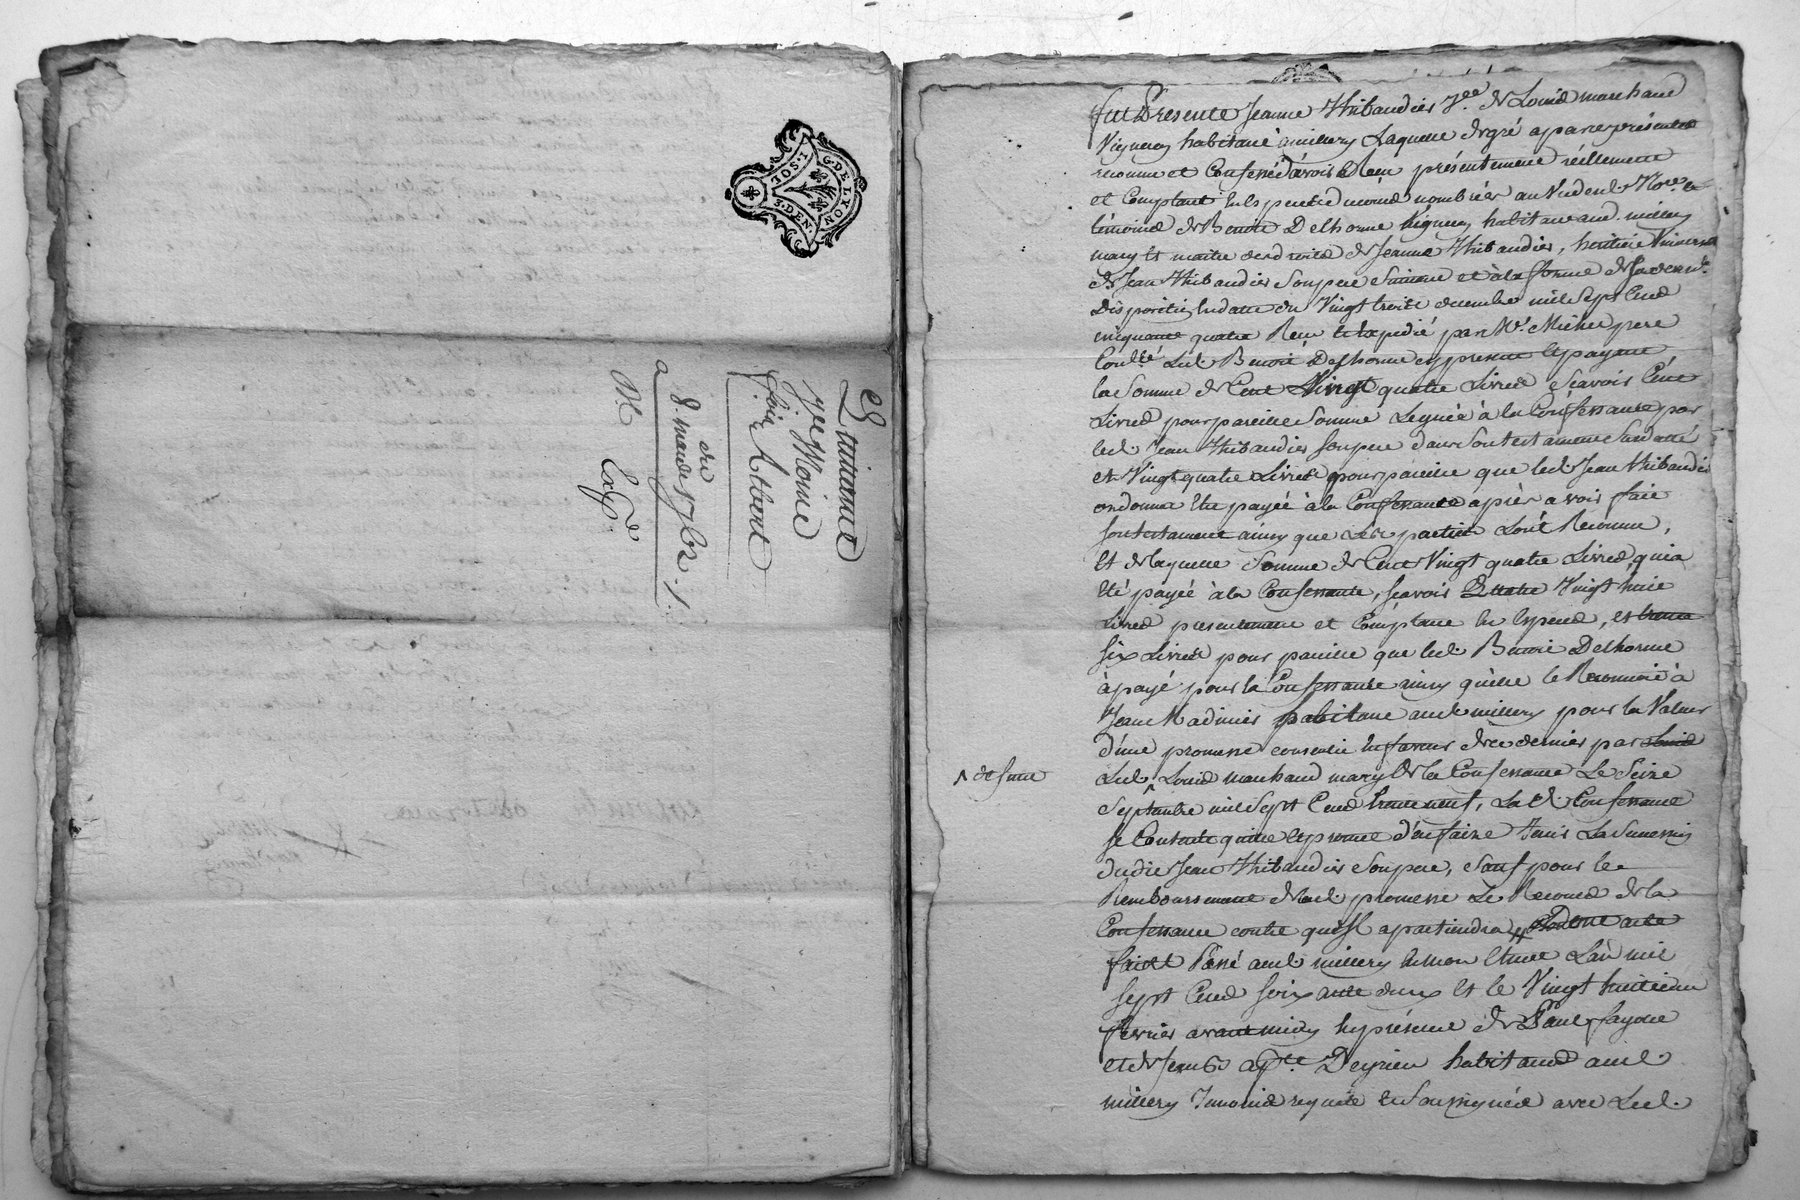 G. DE LYON
1. SOL. I
3. DEN.
Quittance
Moine
Albert
du
8. mars 1762.
Exp.
fut Presente Jeanne Thibaudier v.e de Louis marchand
Vigneron habitante a millery Laquelle de gré a par ces présentes
reconnu et Confessé avoir Receu présentement réellement
et Comptant en Espece de monoie nombrées au vu dud. No.re et
témoins de Benoit Delhorme vigneron habitant aud. millery
mary et maitre des droits de Jeanne Thibaudier, heritiere Universelle
de Jean Thibaudier Son pere Suivant et à la forme de Sa derniere
Disposition en datte du Vingt trois decembre mil Sept Cent
cinquante quatre Receu et Expedié par M.e Michel pere
Led. Benoit Delhorme cy present et payant
la Somme de Cent Vingt quatre Livres Scavoir Cent
Livres pour pareille Somme Leguée à la Confessante par
led. Jean Thibaudier Son pere dans Son testament Susdatté
et Vingt quatre Livres pour pareille que led. Jean Thibaudier
ordonna être payée à la Confessante après avoir fait
Son testament ainsy que Les parties L'ont Reconnu,
Et de laquelle Somme de Cent Vingt quatre Livres qui a
été payée à la Confessante, Scavoir Quatre Vingt huit
Livres presentement et Comptant en Especes, et trente
Six Livres pour pareille que led. Benoit Delhorme
à payé pour la Confessante ainsy qu'elle le Reconnoit à
Jean Madinier habitant aud. millery pour la Valeur
d'une promesse consentie en faveur de ce dernier par
Led. ^ Louis marchand mary de la Confessante Le Seize
^ defunt
Septembre mil Sept Cent trente neuf, La d. Confessante
Se Contente quitte et promet d'en faire tenir La Succession
dudit Jean Thibaudier Son pere, Sauf pour le
Remboursement de lad. promesse Le Recours de la
Confessante contre qui Il apartiendra, dont acte
fait et Passé aud. millery en mon Etude L'an mil
Sept Cent Soixante deux et le Vingt huitieme
fevrier avant midy en présence de Paul fayolle
et de Jean Deyrieu habitans aud.
millery Temoins requis et Soussignés avec Led.